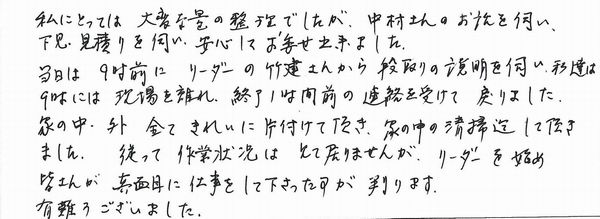 私にとっては 大変な量の整理でしたが、中村さんのお話を伺い、
下見・見積りを伺い 安心してお任せ出来ました。
当日は 9時前に リーダーの竹建さんから 段取りの説明を伺い、私達は
9時には 現場を離れ、終了1時間前の連絡を受けて 戻りました。
家の中・外 全てきれいに片付けて頂き、家の中の清掃迄して頂き
ました。 従って 作業状況は 見て居りませんが、リーダーを始め
皆さんが 真面目に仕事をして下さった事が 判ります。
有難うございました。